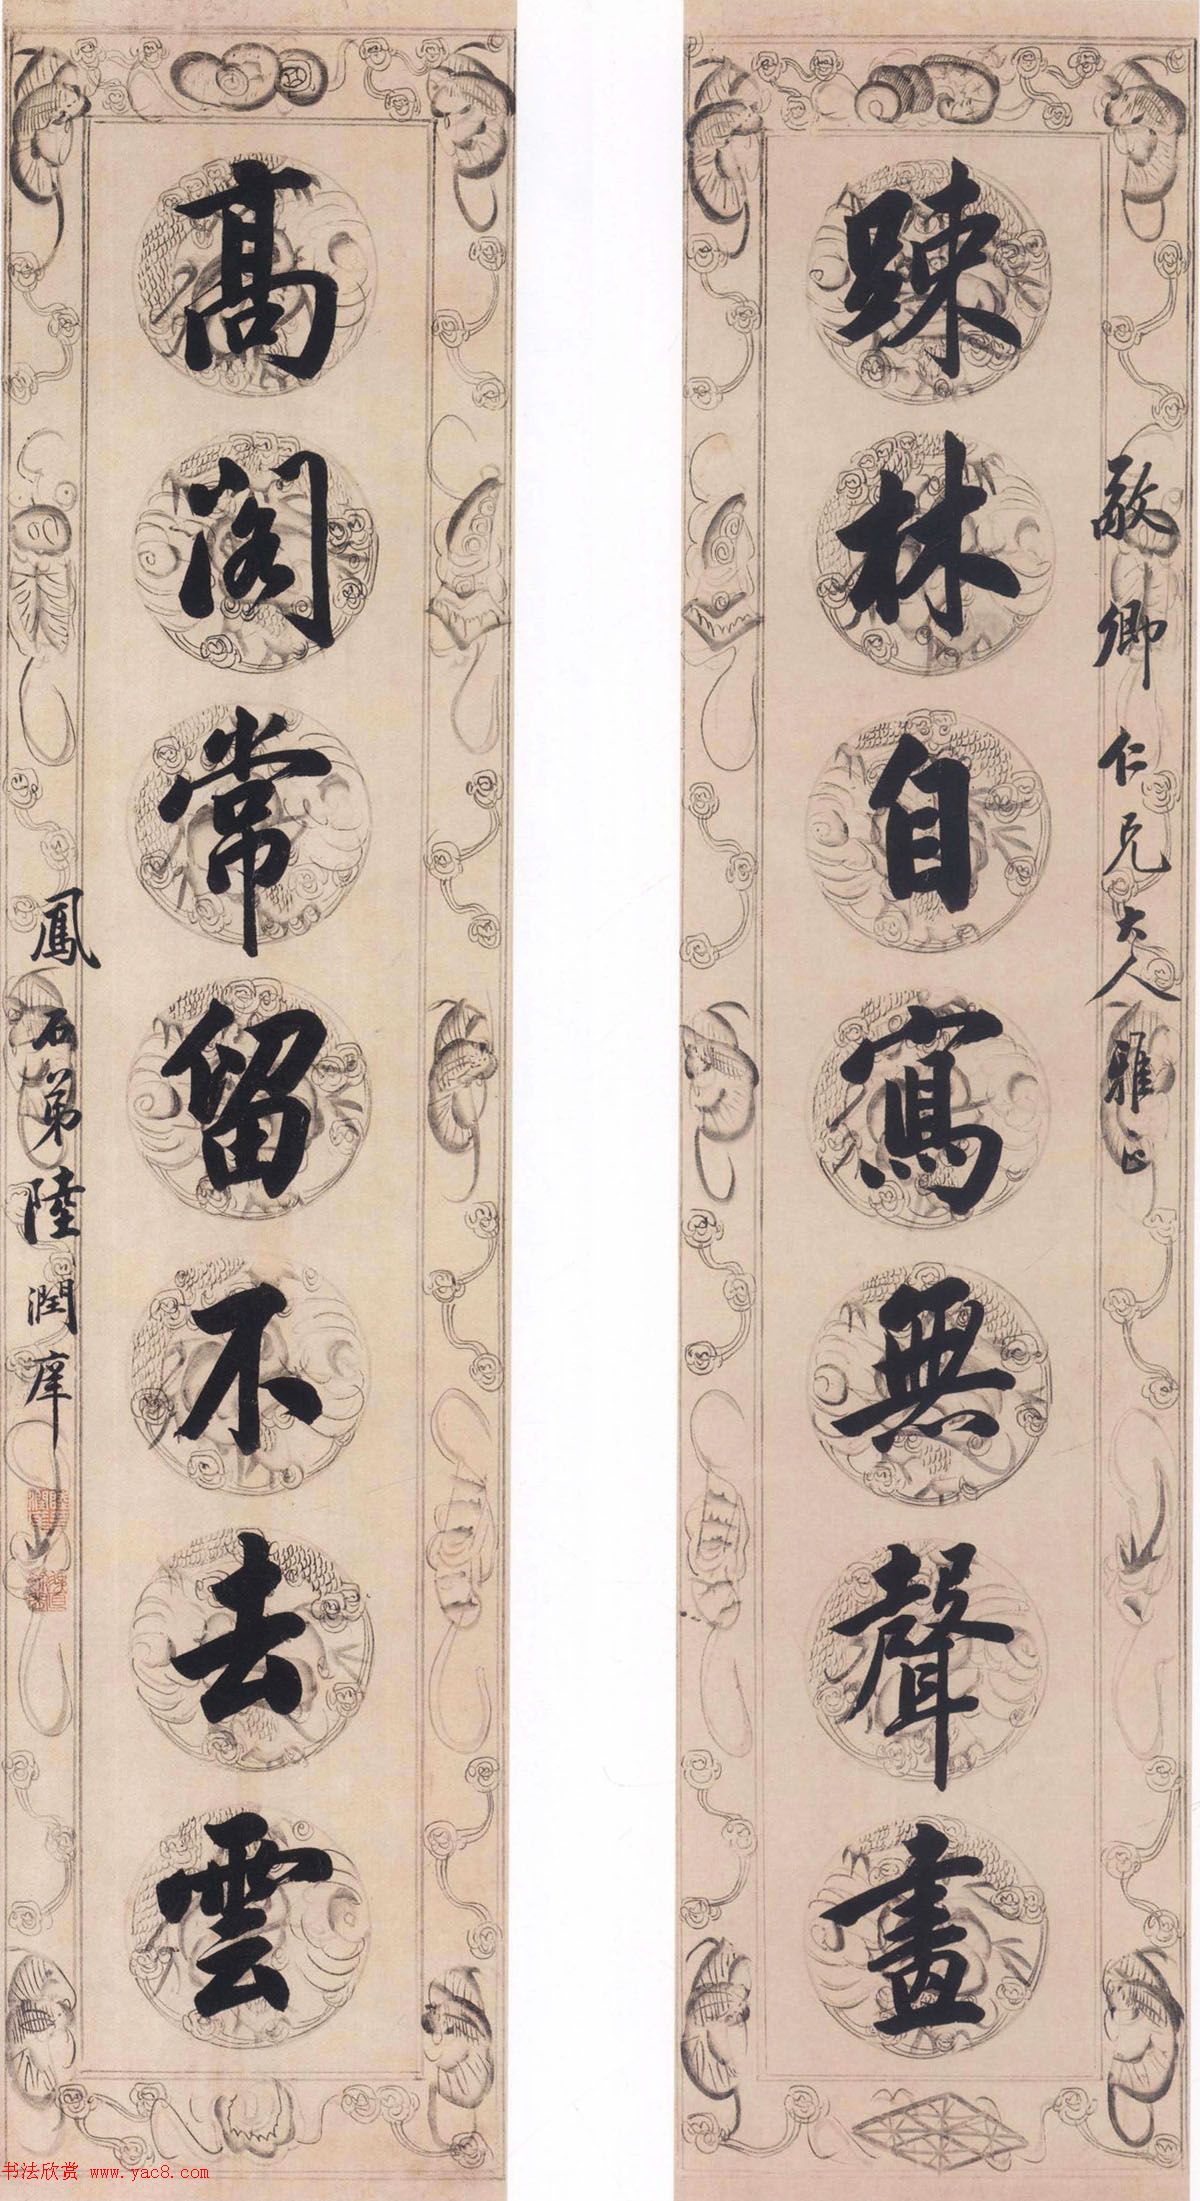 敬卿仁兄大人雅正
踈林自寫無聲畫
高閣常留不去雲
鳳石弟陸潤庠
书法欣赏 www.yac8.com